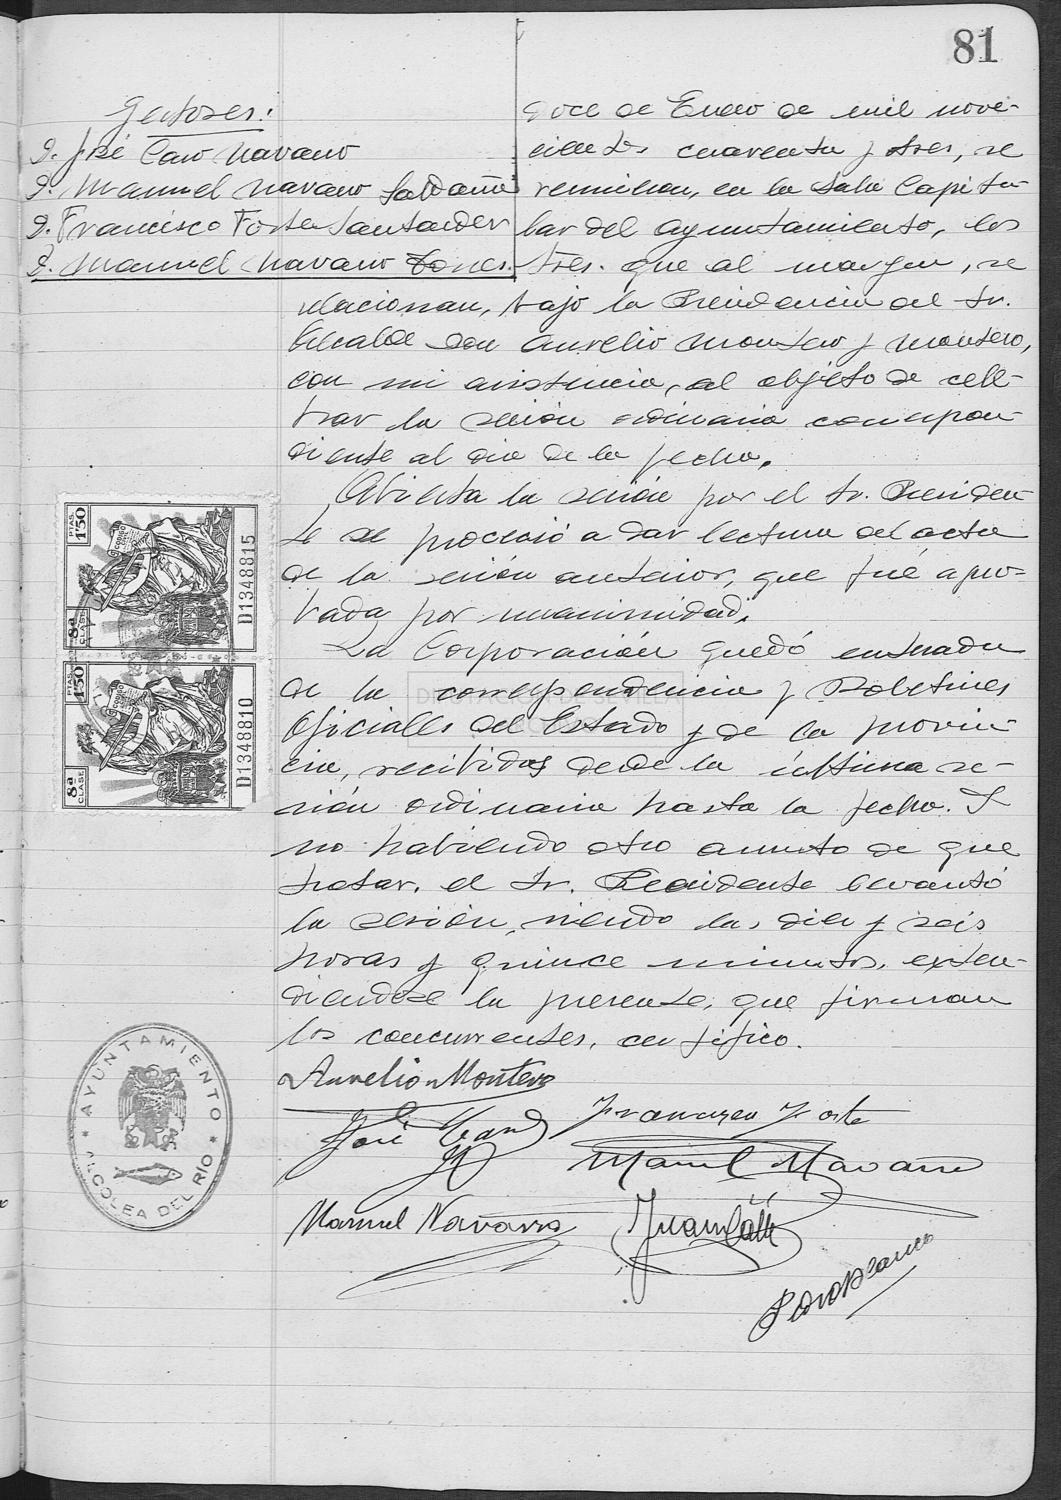 81
Gestores:
D. José Caro Navarro
D. Manuel Navarro Saldaña
D. Francisco Forte Santander
D. Manuel Navarro Torres.
doce de Enero de mil nove-
cientos cuarenta y tres, se
reunieron, en la Sala Capitu-
lar del Ayuntamiento, los
Sres. que al margen, se
relacionan, bajo la Presidencia del Sr.
Alcalde Don Aurelio Montero y Montero,
con mi asistencia, al objeto de cele-
brar la sesión ordinaria correspon-
diente al dia de la fecha.
Abierta la sesión por el Sr. Presiden-
te se procedió a dar lectura del acta
de la sesión anterior, que fué apro-
bada por unanimidad.
La Corporación quedó enterada
de la correspondencia y Boletines
Oficiales del Estado y de la provin-
cia, recibidos desde la última se-
sión ordinaria hasta la fecha. Y
no habiendo otro asunto de que
tratar, el Sr. Presidente levantó
la sesión, siendo las diez y seis
horas y quince minutos, exten-
diendose la presente, que firman
los concurrentes, certifico.
Aurelio Montero
José Caro Francisco Forte
Manuel Navarro
Manuel Navarro Juan
Pedro Blanco
PTAS. 1'50
8ª CLASE
D1348815
PTAS. 1'50
8ª CLASE
D1348810
DIPUTACIÓN DE SEVILLA
AYUNTAMIENTO
ALCOLEA DEL RIO